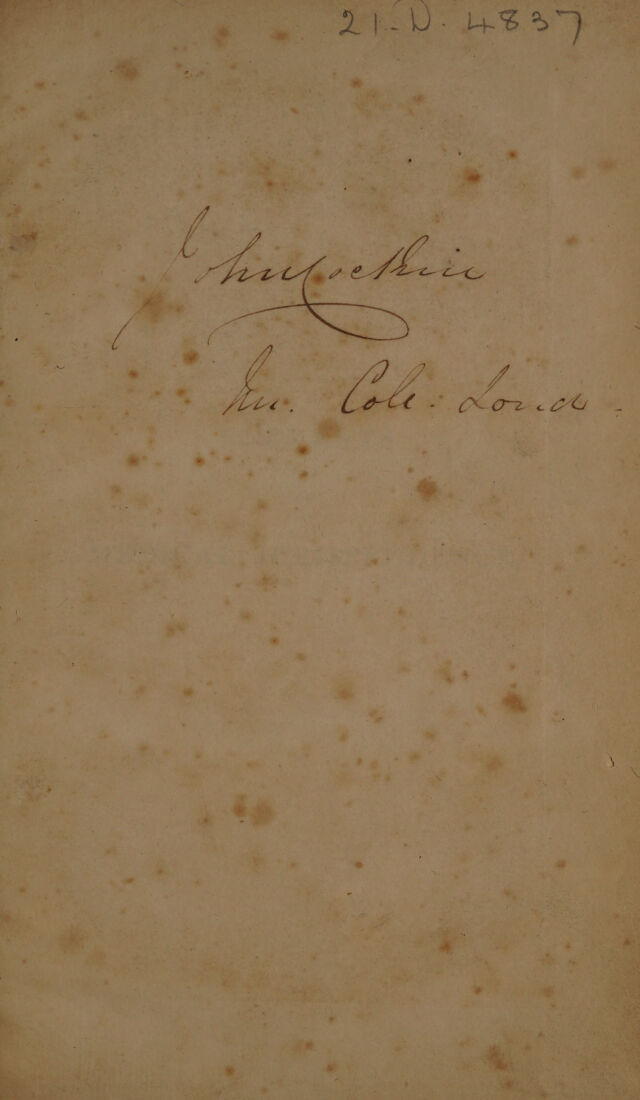 21-D. 4837
John Cockin
Cole. Lond.